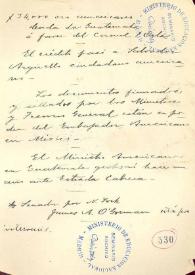 $34,000 oro americano
deuda de Guatemala
á favor del Coronel
El crédito pasó á Salvador
Argüello ciudadano america
no.
Los documentos firmados
y sellados por los Ministros
y Tesoro General están en po
der del Embajador Americano
en México.
El Ministro Americano
en Guatemala gestionó hace
un mes ante Estrada Cabrera.
Senador por N. York
James A. O'Gorman
MINISTERIO DE EDUCACION NACIONAL
530